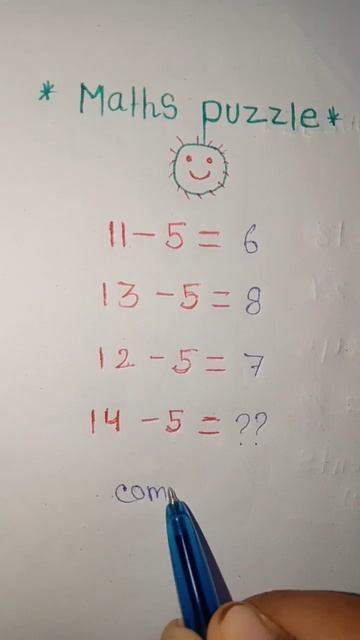 * Maths puzzle *
11 - 5 = 6
13 - 5 = 8
12 - 5 = 7
14 - 5 = ??
com